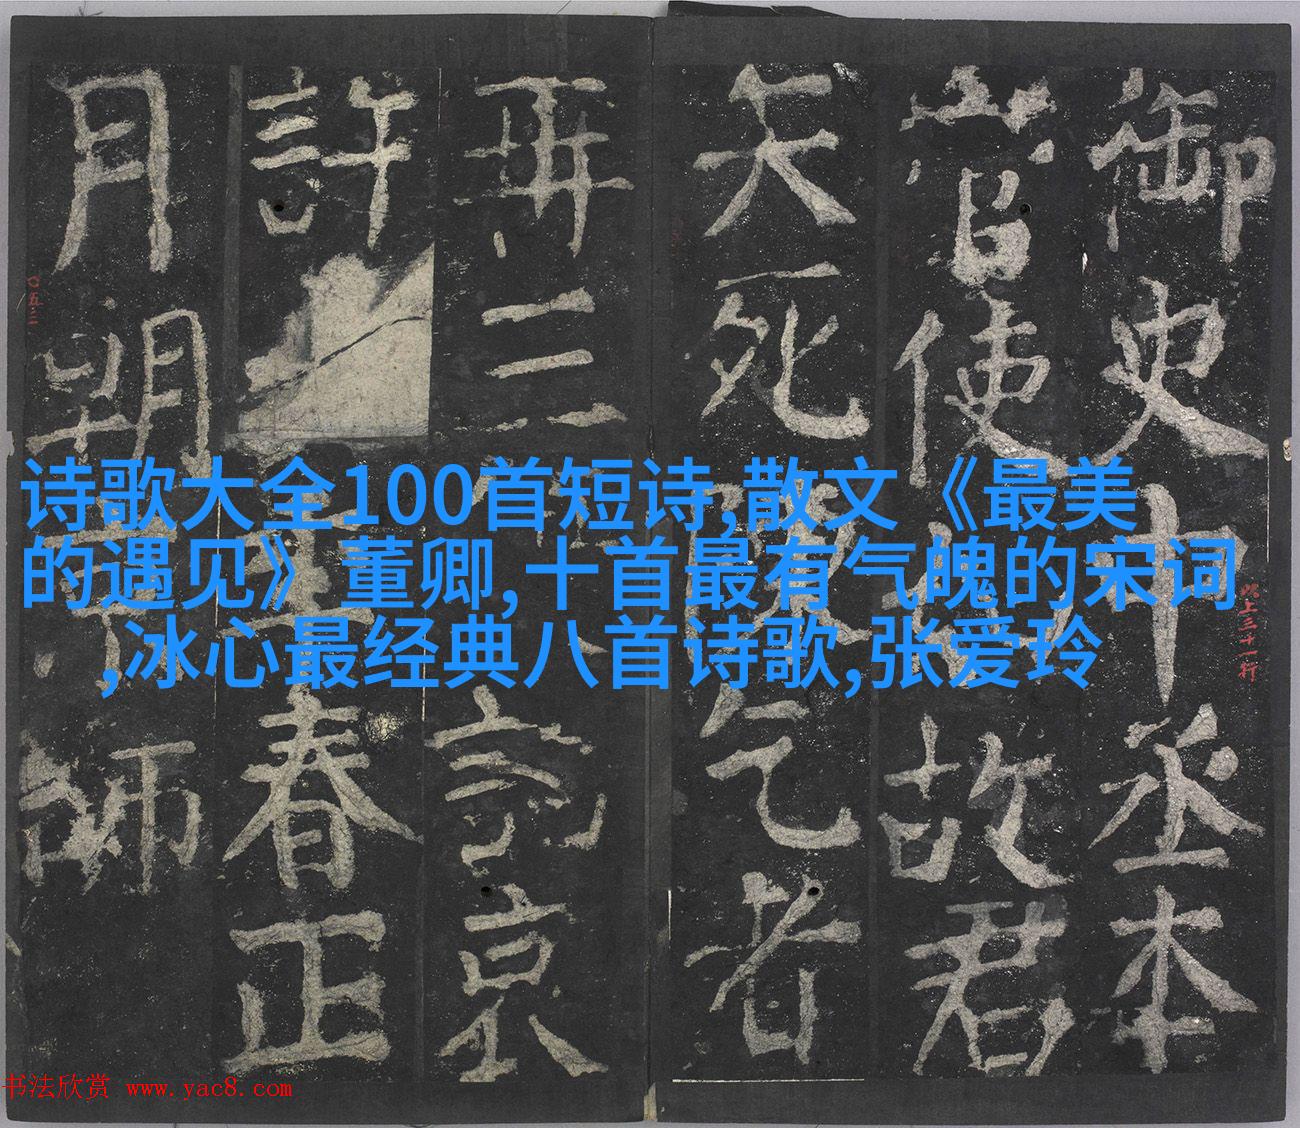 御史中丞本
使故君
死乞者
再三京
許春正
月朔師
以上三十一行
〇五三
诗歌大全100首短诗,散文《最美
的遇见》董卿,十首最有气魄的宋词
,冰心最经典八首诗歌,张爱玲
书法欣赏 www.yac8.com